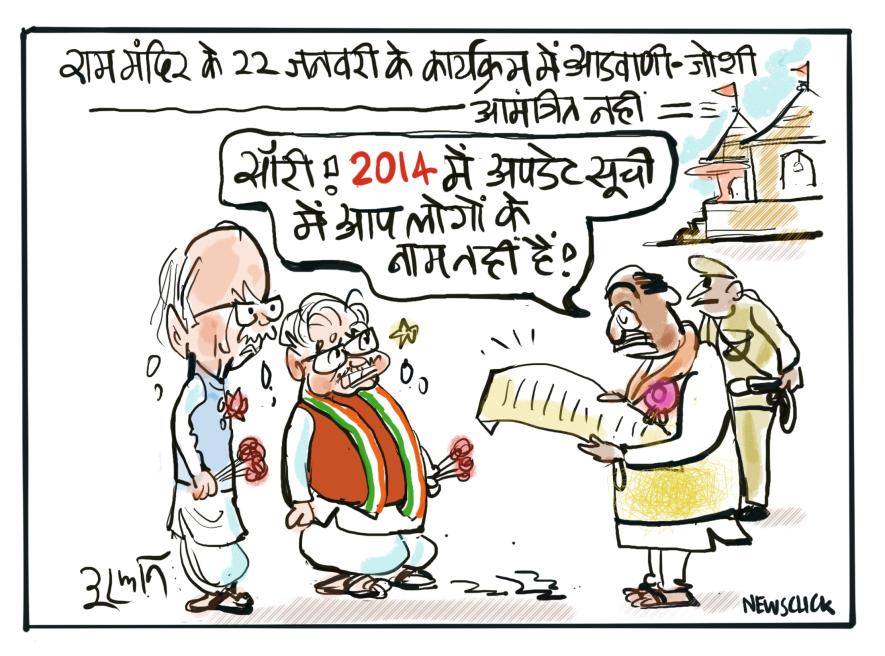 राम मंदिर के 22 जनवरी के कार्यक्रम में आडवाणी-जोशी
आमंत्रित नहीं =
सॉरी! 2014 में अपडेट सूची
में आप लोगों के
नाम नहीं हैं!
NEWSCLICK